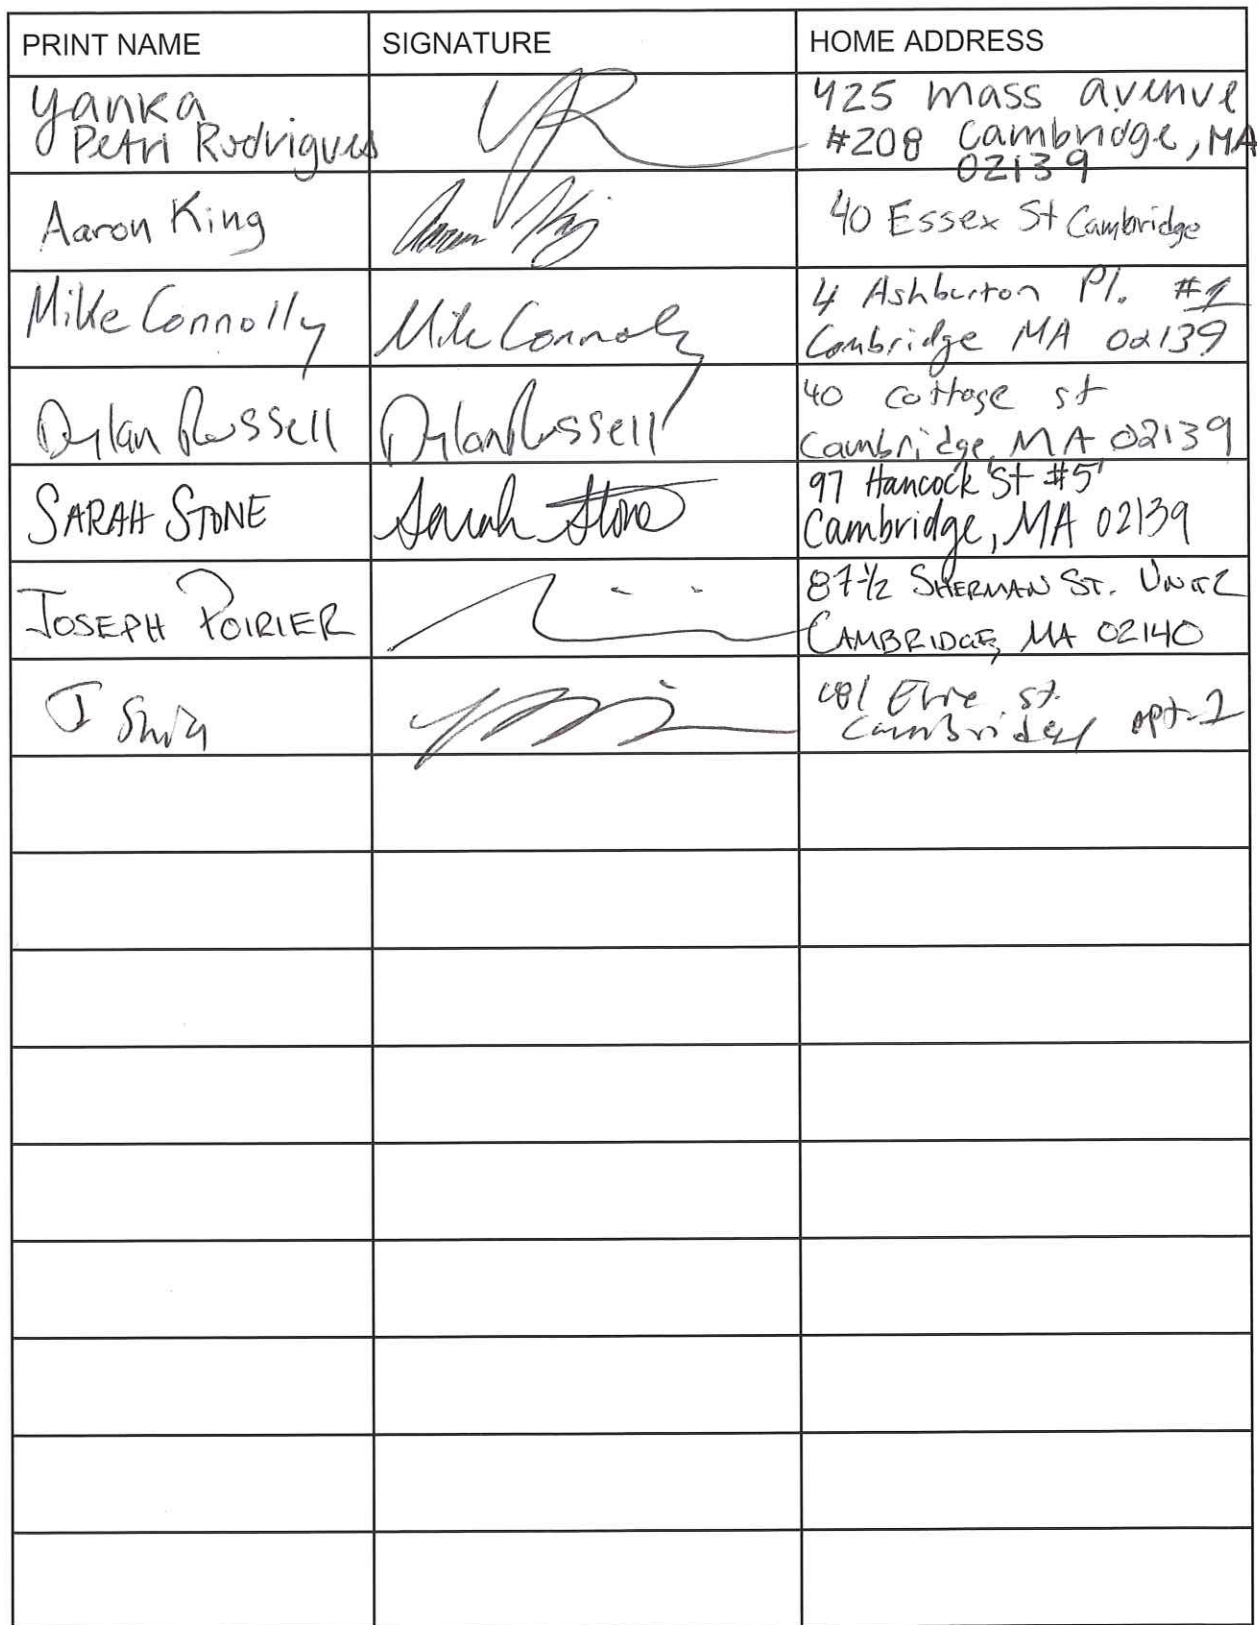 PRINT NAME SIGNATURE HOME ADDRESS
Yanka
Petri Rodrigues
425 mass avenue
#208 Cambridge, MA
02139
Aaron King Aaron King 40 Essex St Cambridge
Mike Connolly Mike Connolly
4 Ashburton Pl. #1
Cambridge MA 02139
Dylan Russell Dylan Russell
40 cottage st
Cambridge, MA 02139
SARAH STONE Sarah Stone
97 Hancock St #5
Cambridge, MA 02139
JOSEPH POIRIER
87 1/2 SHERMAN ST. UNIT 2
CAMBRIDGE, MA 02140
J
st.
Cambridge apt-2